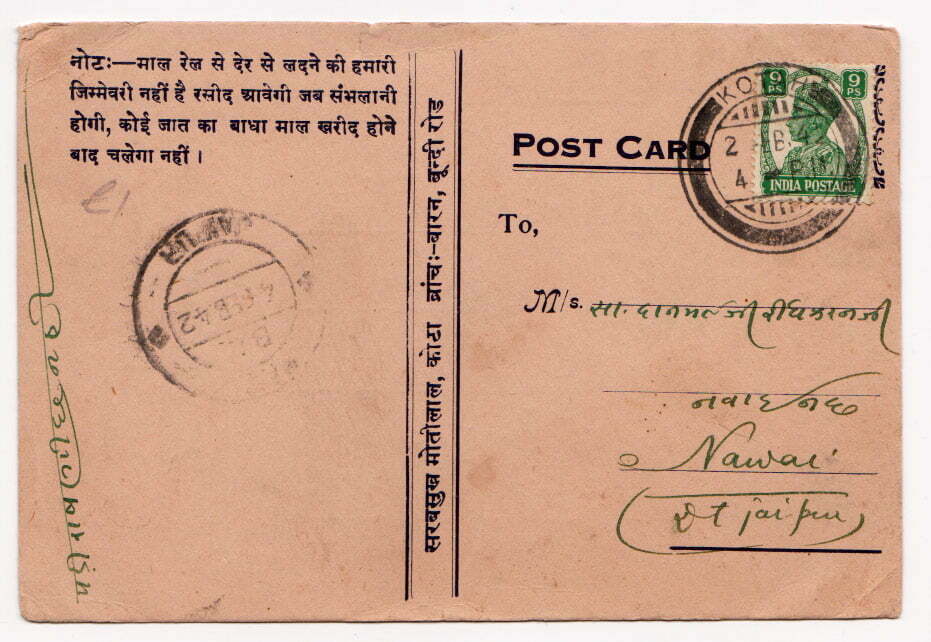 नोटः—माल रेल से देर से लदने की हमारी
जिम्मेवरी नहीं है रसीद आवेगी जब संभलानी
होगी, कोई जात का बाधा माल खरीद होने
बाद चलेगा नहीं ।
सरबसुख मोतीलाल, कोटा ब्रांचः-बारन, बून्दी रोड
POST CARD
9 PS
9 PS
INDIA POSTAGE
To,
M/s. सा. दानमल जी रीधकरनजी
नवाई
Nawai
(Dt jaipur)
4 FEB 42